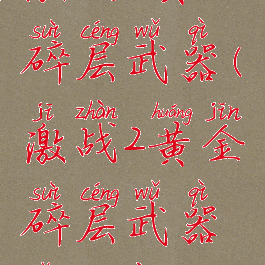 suì céng wǔ qì
碎层武器(
jī zhàn huáng jīn
激战2黄金
suì céng wǔ qì
碎层武器